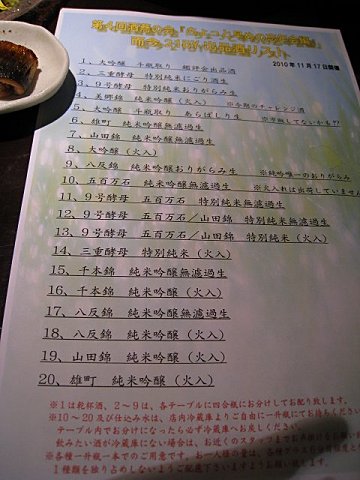 2010年11月17日開催
1、大吟醸 斗瓶取り 鑑評会出品酒
2、三重酵母 特別純米にごり生酒
3、9号酵母 特別純米おりがらみ生
4、美郷錦 純米吟醸（火入） ※今期のチャレンジ酒
5、大吟醸 斗瓶取り あらばしり生
6、雄町 純米吟醸無濾過生
7、山田錦 純米吟醸無濾過生
8、大吟醸（火入）
9、八反錦 純米吟醸おりがらみ生 ※純吟唯一のおりがらみ
10、五百万石 純米吟醸無濾過生 ※火入れは出荷していません
11、9号酵母 五百万石 特別純米無濾過生
12、9号酵母 五百万石／山田錦 特別純米無濾過生
13、9号酵母 五百万石／山田錦 特別純米（火入）
14、三重酵母 特別純米（火入）
15、千本錦 純米吟醸無濾過生
16、千本錦 純米吟醸（火入）
17、八反錦 純米吟醸無濾過生
18、八反錦 純米吟醸（火入）
19、山田錦 純米吟醸（火入）
20、雄町 純米吟醸（火入）
※1は乾杯酒、2～9は、各テーブルに四合瓶にてお分けしてお配り致します。
※10～20及び仕込み水は、店内冷蔵庫よりご自由に一升瓶にてお持ちください
テーブル内でお分けになったら必ず冷蔵庫へお戻しください。
飲みたい酒が冷蔵庫にない場合は、お近くのスタッフまでお声掛けをお願い
※各種一升瓶一本でのご用意です。お一人様の量は、各種グラス
1種類を独り占めしないようご配慮下さいますようお願い致します。